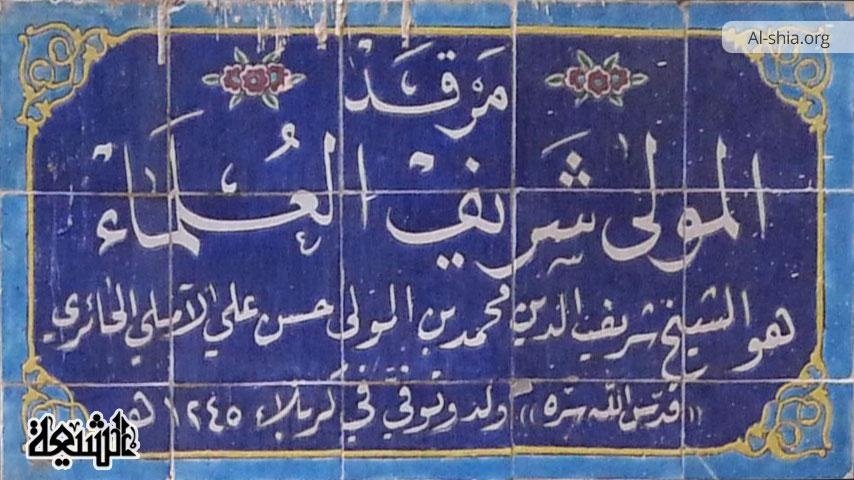 Al-shia.org
مَرْقَدْ
المولىٰ شَريفْ العُلَماءْ
هو الشيخ شريف الدين محمد بن المولى حسن علي الآملي الحائري
((قدّس اللّه سرّه)) ولد وتوفيّ في كربلاء ١٢٤٥ هـ
الشيعة